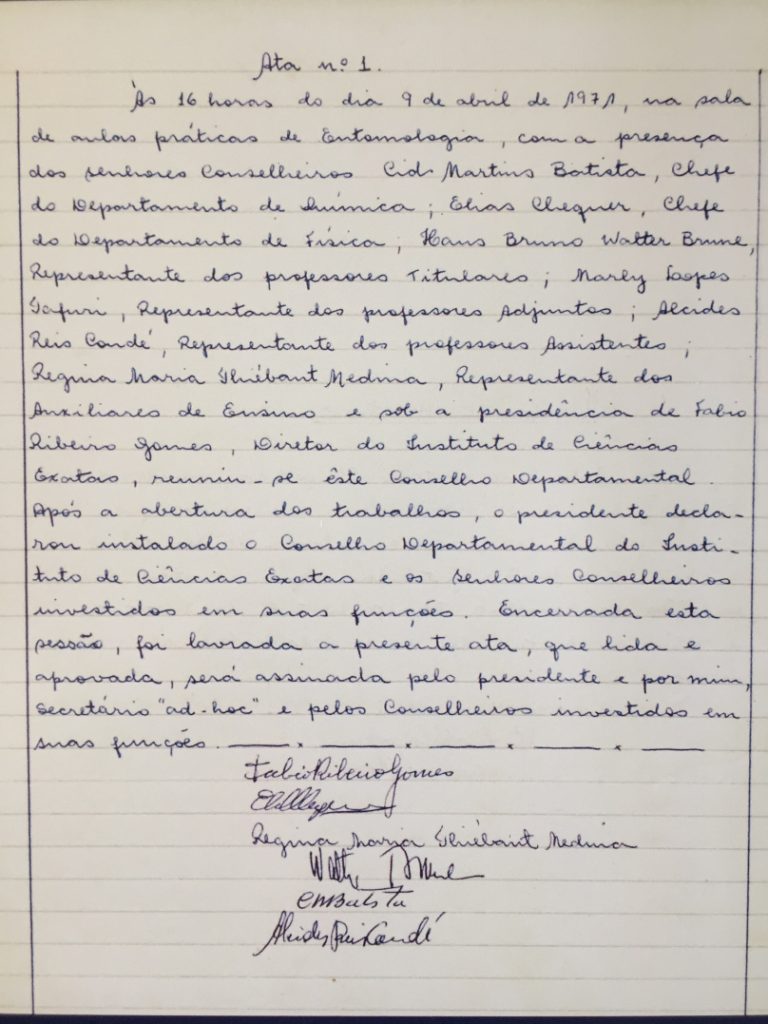 Ata nº 1.
Às 16 horas do dia 9 de abril de 1971, na sala
de aulas práticas de Entomologia, com a presença
dos senhores Conselheiros Cid Martins Batista, Chefe
do Departamento de Química; Elias Chequer, Chefe
do Departamento de Física; Hans Bruno Walter Brune,
Representante dos professores Titulares; Marly Lopes
Tafuri, Representante dos professores Adjuntos; Alcides
Reis Condé, Representante dos professores Assistentes;
Regina Maria Thiébant Medina, Representante dos
Auxiliares de Ensino e sob a presidência de Fabio
Ribeiro Gomes, Diretor do Instituto de Ciências
Exatas, reuniu-se êste Conselho Departamental.
Após a abertura dos trabalhos, o presidente decla-
rou instalado o Conselho Departamental do Insti-
tuto de Ciências Exatas e os senhores Conselheiros
investidos em suas funções. Encerrada esta
sessão, foi lavrada a presente ata, que lida e
aprovada, será assinada pelo presidente e por mim,
secretário "ad-hoc" e pelos Conselheiros investidos em
suas funções.
Fabio Ribeiro Gomes
Regina Maria Thiébant Medina
Walter Brune
CMBatista
Alcides Reis Condé